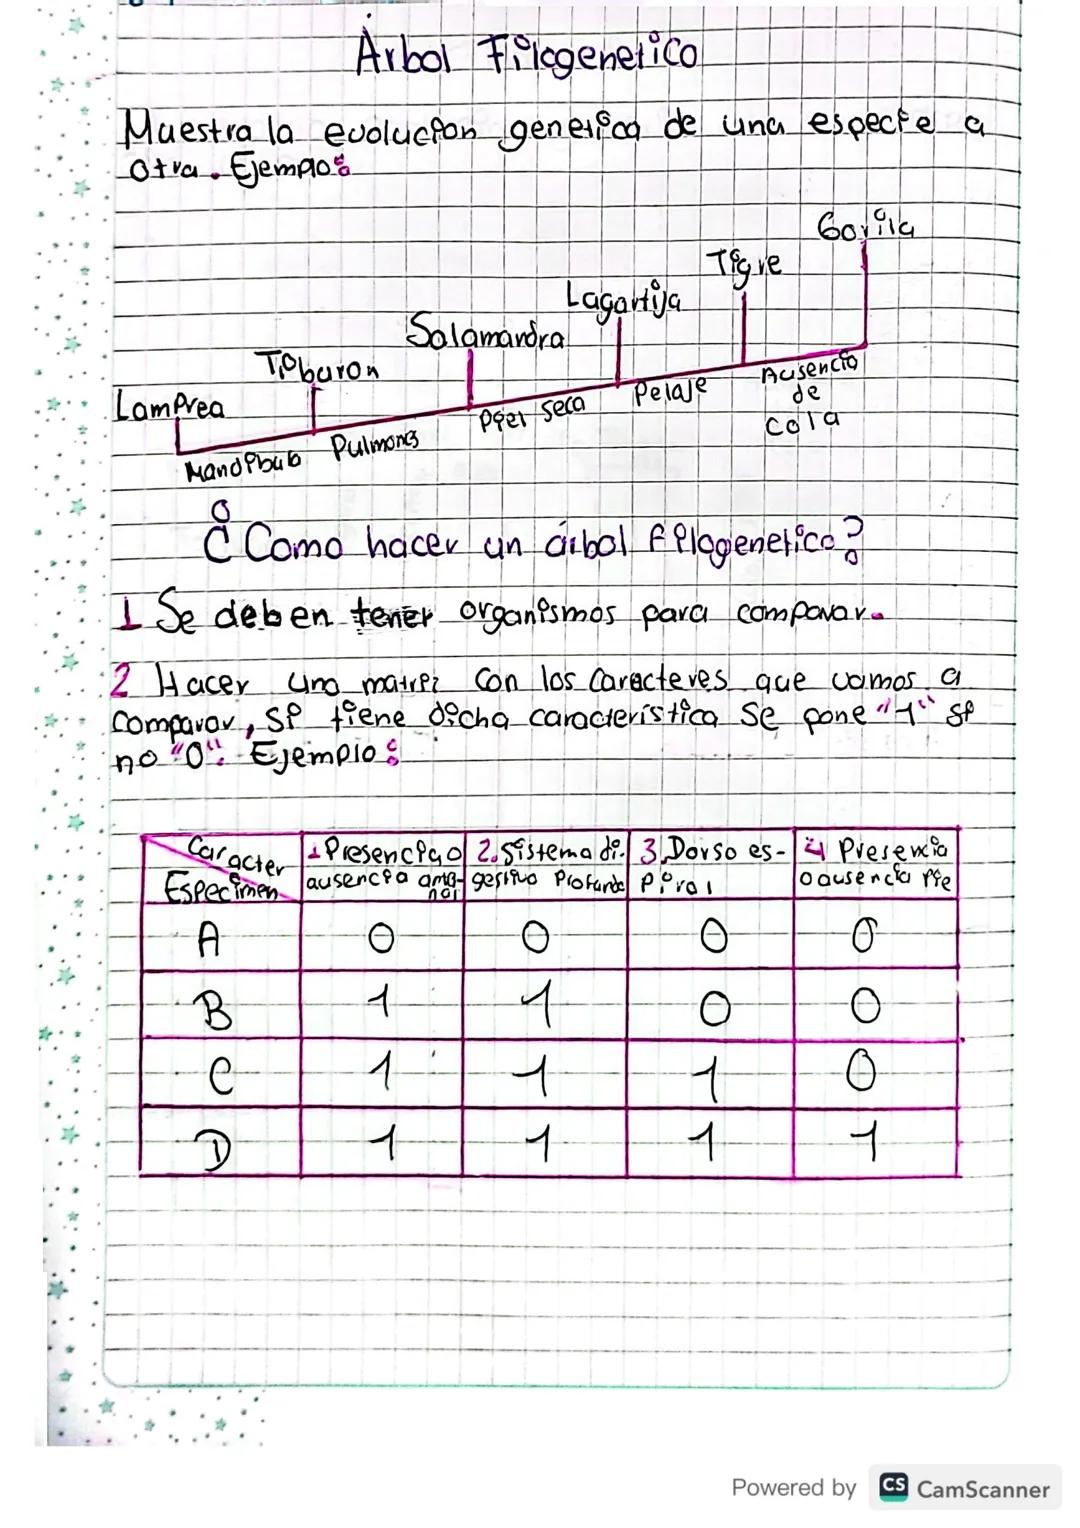 Árbol Filogenetico
Muestra la evolucion genetica de una especie a
otra. Ejemplo:
Gorila
Tigre
Lagartija
Salamandra
Tiburon
Lamprea
Mandibula
Pulmones
Piel seca
Pelaje
Ausencia
de
cola
¿Como hacer un árbol filogenetico?
1 Se deben tener organismos para comparar.
2 Hacer una matriz con los caracteres que vamos a
comparar, si tiene dicha caracteristica se pone "1" si
no "0". Ejemplo:
Caracter
Especimen
1 Presencia o
ausencia
2. Sistema di-
gestivo Profundo
3. Dorso es-
piral
4 Presencia
o ausencia Pie
A 0 0 0 0
B 1 1 0 0
C 1 1 1 0
D 1 1 1 1
Powered by CS CamScanner